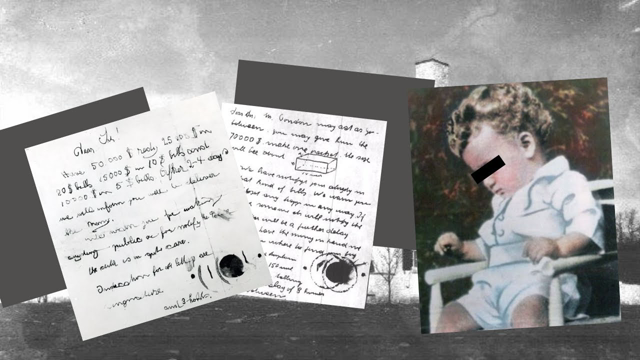 Dear Sir!
Have 50.000 $ redy 25000 $ in
20 $ bills 15000 $ in 10 $ bills and
10000 $ in 5 $ bills. After 2-4 days
we will inform you were to deliver
the Mony.
We warn you for making
anyding public or for notify the Police
the child is in gute care.
Indication for all letters are
singnature
and 3 holes.
Mr. Condon may act as go-
between. You may give him the
70000 $ make one packet. the size
will be about
We have notifyt you allredy in
what kind of bills. We warn you
any trapp in any way. If
someone els will notify the
will be a further delay
the mony in hand
where to find
airplane
150 mil
telling
delay of 8 houers
between